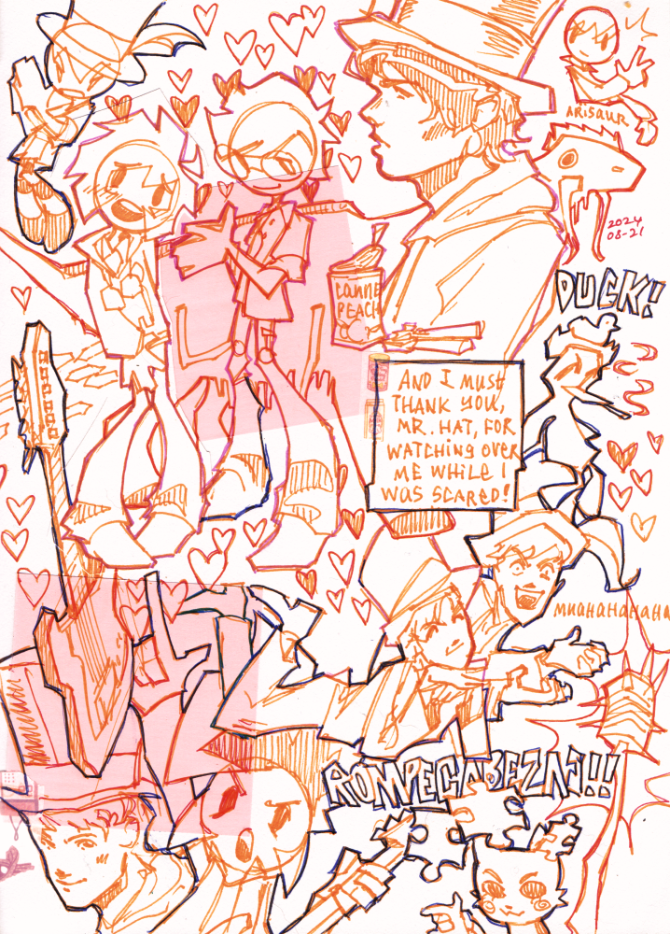 ARISAUR
2024
08-21
DUCK!
CANNE
PEACH
AND I MUST
THANK YOU,
MR. HAT, FOR
WATCHING OVER
ME WHILE I
WAS SCARED!
MUAHAHAHAHA
ROMPECABEZAS!!